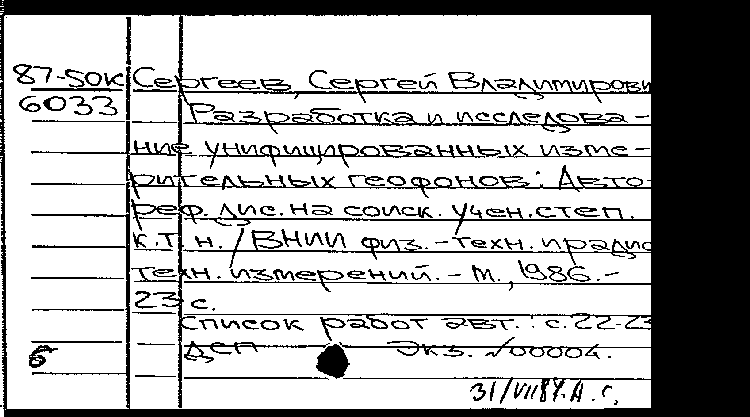 87-50к Сергеев, Сергей Владимирови
6033 Разработка и исследова-
ние унифицированных изме-
рительных геофонов: Авто-
реф. дис. на соиск. учен. степ.
к.т.н. / ВНИИ физ.-техн. и радио
техн. измерений. - М., 1986.-
23 с.
Список работ авт.: с. 22-23
ДСП Экз. №00004.
б
31/VII87. А. Г.